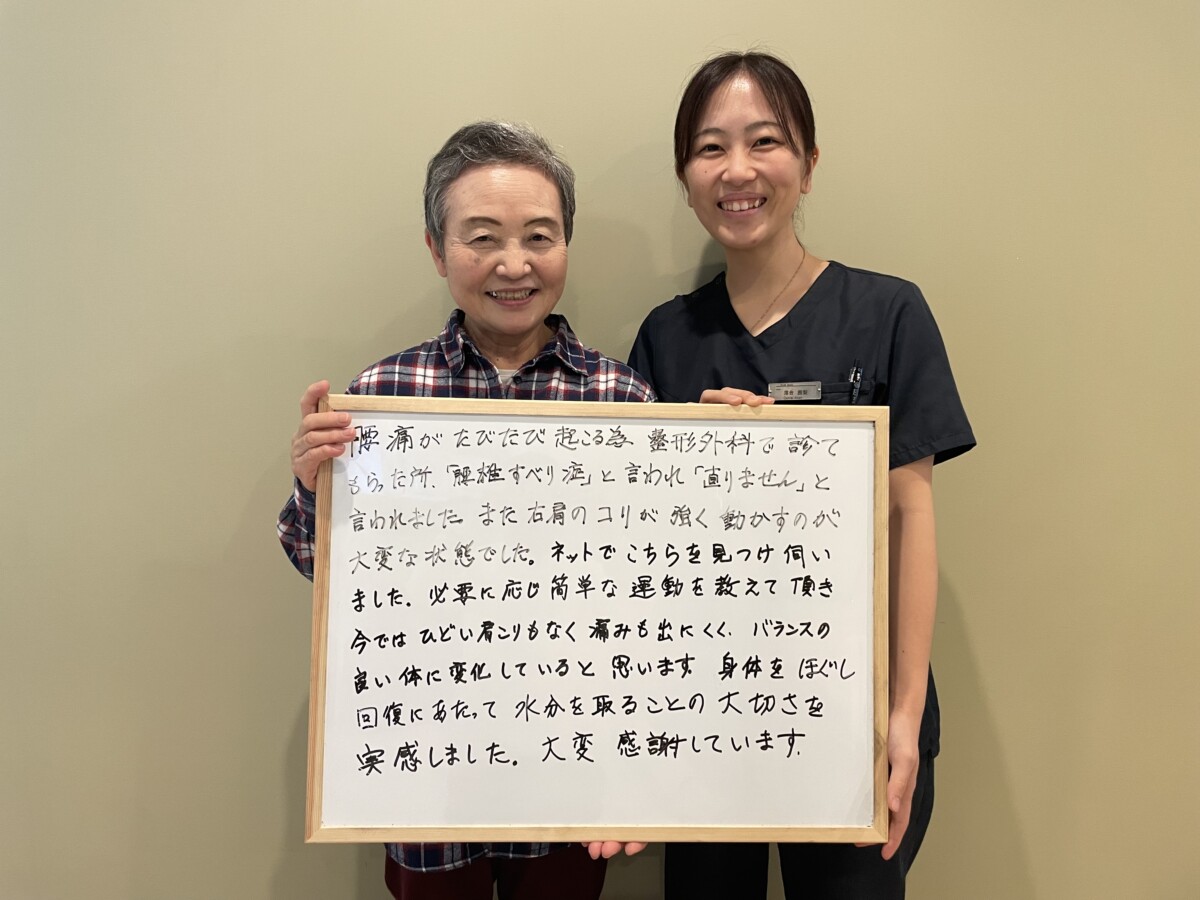 腰痛がたびたび起こる為 整形外科で診て
もらった所、「腰椎すべり症」と言われ「直りません」と
言われました。また右肩のコリが強く動かすのが
大変な状態でした。ネットでこちらを見つけ伺い
ました。必要に応じ簡単な運動を教えて頂き
今ではひどい肩こりもなく痛みも出にくく、バランスの
良い体に変化していると思います。身体をほぐし
回復にあたって水分を取ることの大切さを
実感しました。大変 感謝しています。